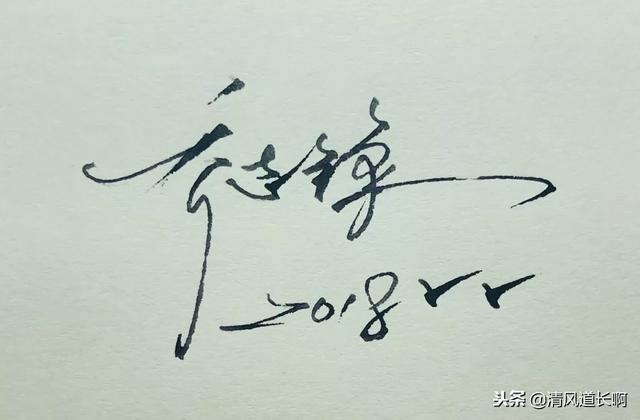 乔志
2018
头条 @清风道长啊